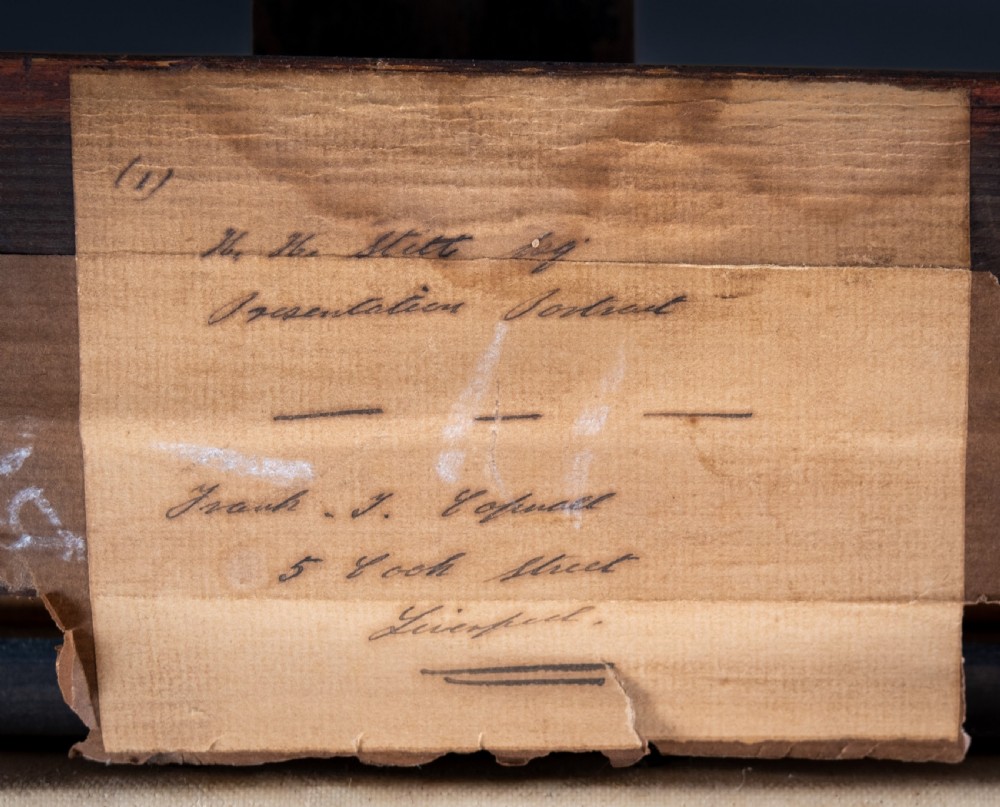 (1)
H. H. Stitt Esq
Presentation Portrait
Frank . T. Copnall
5 Cook Street
Liverpool.